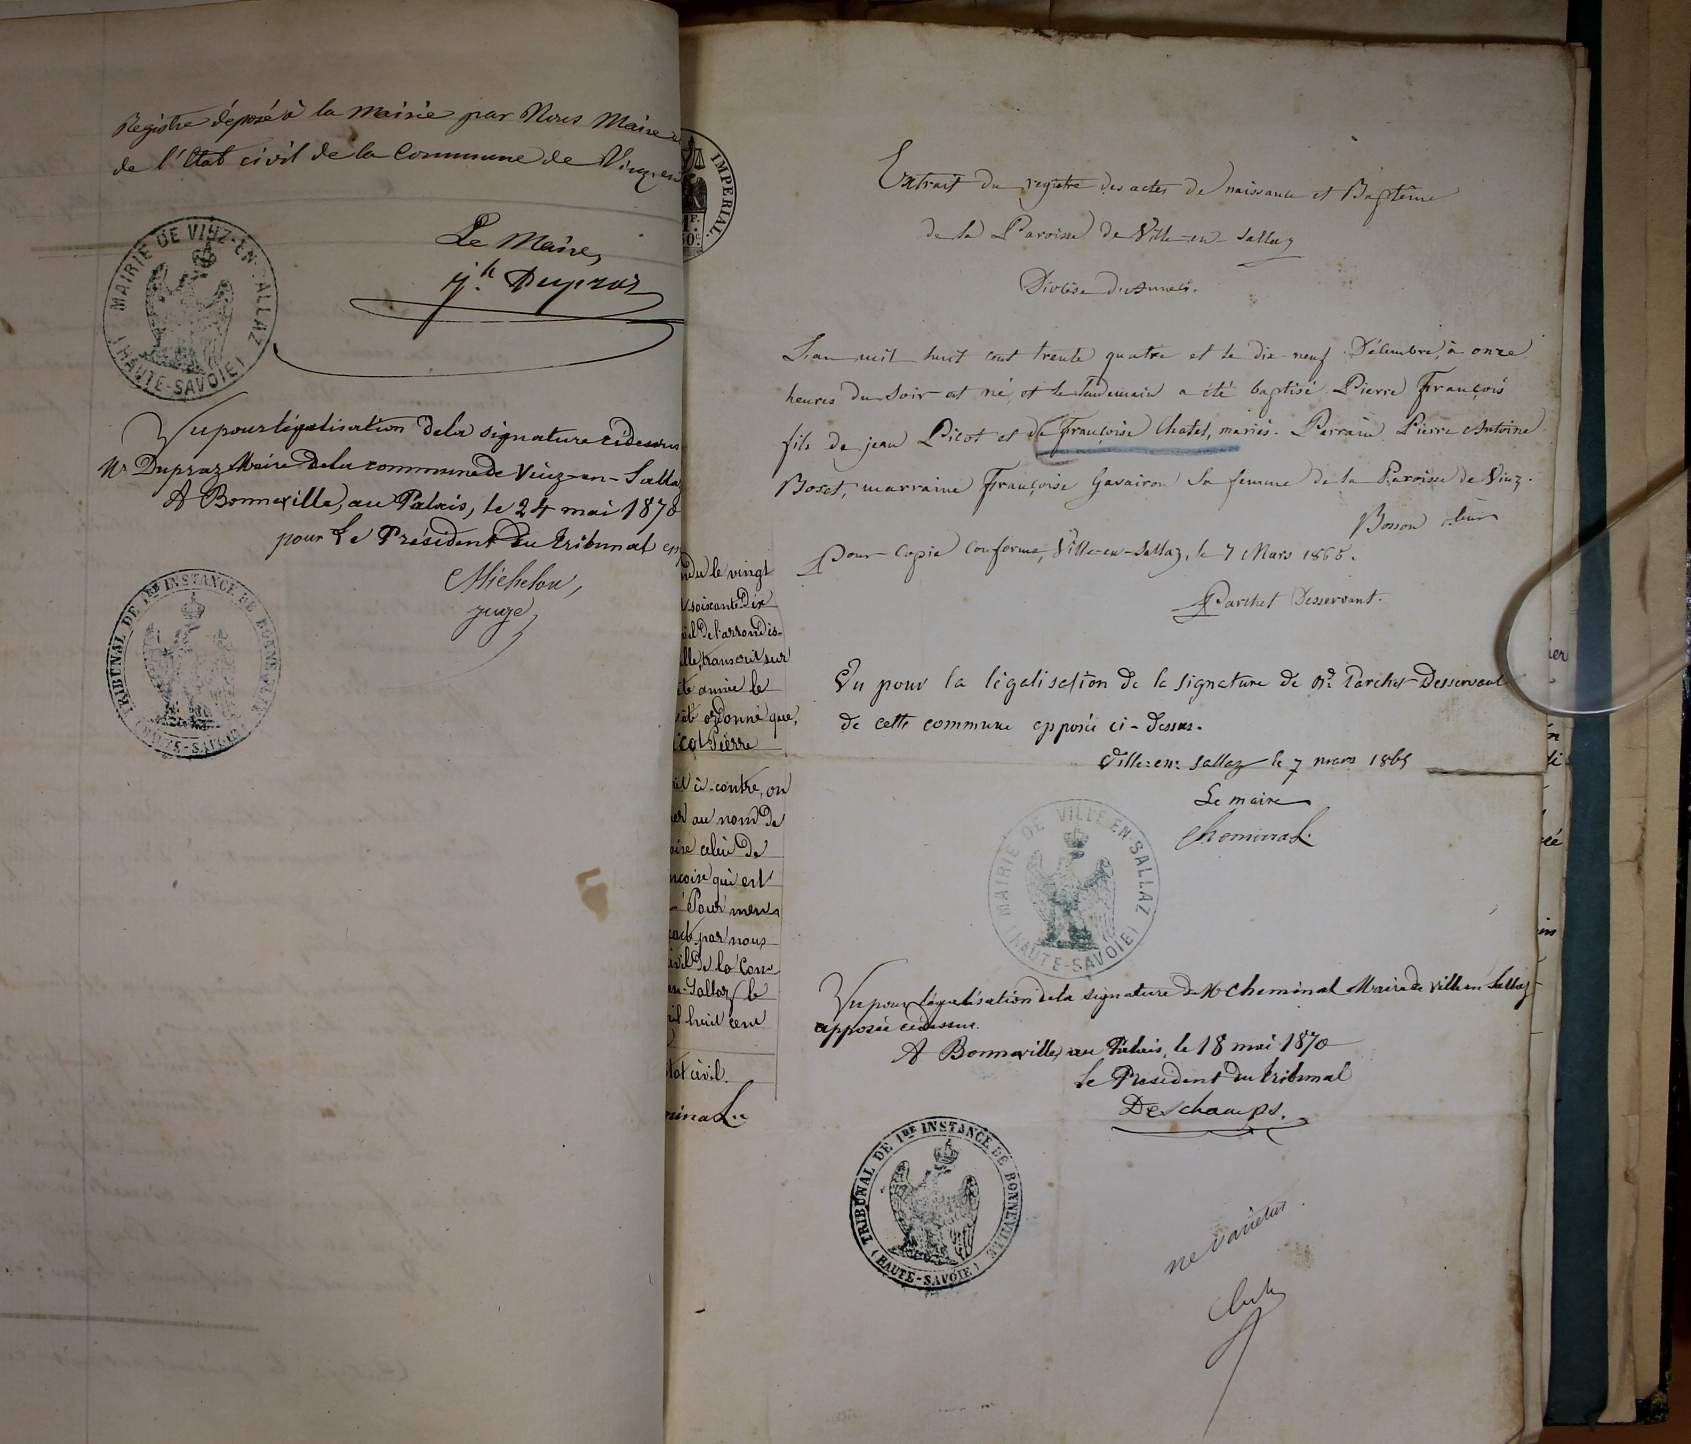 Registre déposé à la Mairie par Nous Maire
de l'Etat civil de la Commune de Viuz-en
Le Maire,
jh. Dupraz
MAIRIE DE VIUZ-EN-SALLAZ
(HAUTE-SAVOIE)
Vu pour légalisation de la signature cidessus
Mr Dupraz Maire de la commune de Viuz-en-Salla
A Bonneville, au Palais, le 24 mai 1870
pour Le Président du tribunal
Michelou,
juge
TRIBUNAL DE 1RE INSTANCE DE BONNEVILLE
(HAUTE-SAVOIE)
ndu le vingt
soixante Dix
de l'arrondis-
lle, transcrit sur
année le
ordonné que,
cot Pierre
ci-contre, on
au nom de
celui de
ncoise qui est
Pour men
par nous
de la Com
en-Sallaz, le
il huit cent
tat civil.
minal
IMPERIAL.
1F.
50c
Extrait du registre des actes de naissance et Baptême
de la Paroisse de Ville-en-Sallaz
Diocèse d'Annecy.
L'an mil huit cent trente quatre et le dix neuf Décembre, à onze
heures du soir est né, et le lendemain a été baptisé Pierre François
fils de jean Picot et de Françoise Chatel, mariés. Parrain Pierre Antoine
Boset, marraine Françoise Gavairon sa femme de la Paroisse de Viuz.
Bosson
Pour copie conforme, Ville-en-Sallaz, le 7 Mars 1865.
Parchet Desservant.
Vu pour la légalisation de la signature de Mr. Parchet Desservant
de cette commune apposée ci-dessus.
Ville-en-Sallaz le 7 mars 1865
Le maire
Cheminal
MAIRIE DE VILLE-EN-SALLAZ
(HAUTE-SAVOIE)
Vu pour légalisation de la signature de Mr Cheminal Maire de Ville en Sallaz
apposée cidessus.
A Bonneville, au Palais, le 18 mai 1870
Le Président du tribunal
Deschamps.
TRIBUNAL DE 1RE INSTANCE DE BONNEVILLE
(HAUTE-SAVOIE)
ne varietur.